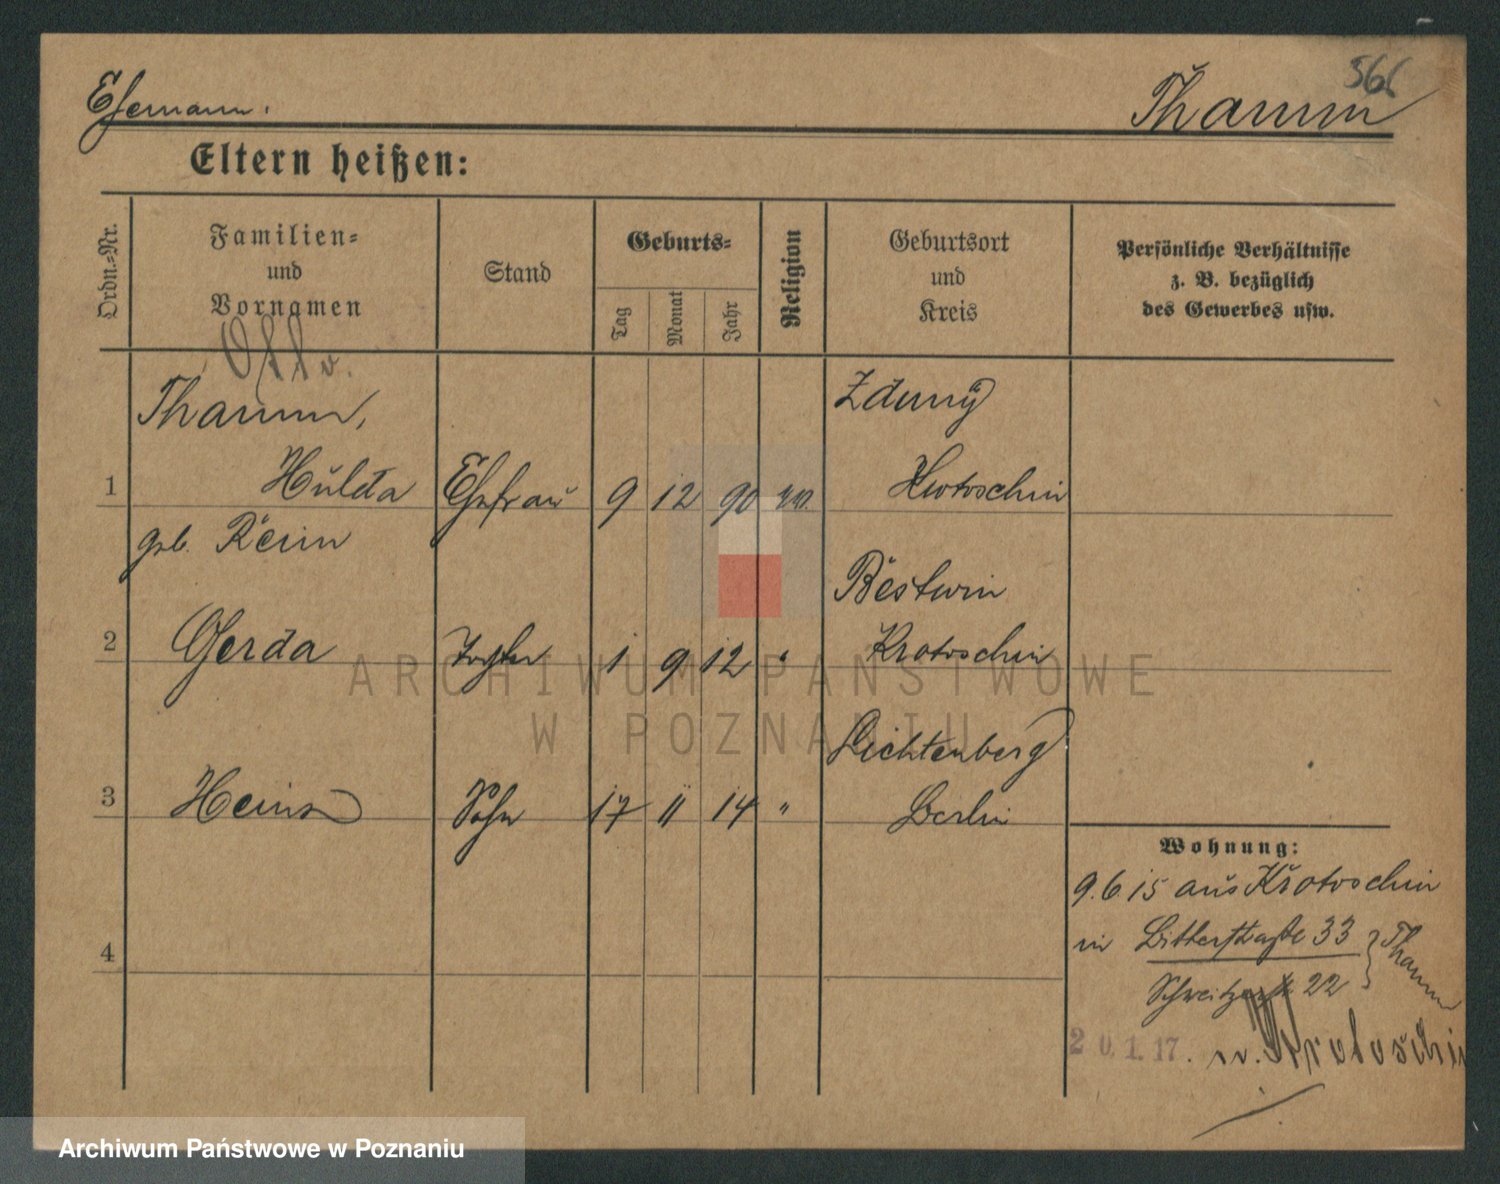 Ehemann.
Thamm
Eltern heißen:
Ordn.-Nr.
Familien-
und
Vornamen
Stand
Geburts-
Tag
Monat
Jahr
Religion
Geburtsort
und
Kreis
Persönliche Verhältnisse
z. B. bezüglich
des Gewerbes usw.
Otto.
Thamm,
Zduny
1 Hulda Ehefrau 9 12 90 ev. Krotoschin
geb. Reim
Bestwin
2 Gerda Tochter 1 9 12 " Krotoschin
Lichtenberg
3 Heinz Sohn 17 11 14 " Berlin
4
Wohnung:
9.6.15 aus Krotoschin
in Bitterstraße 33
Thamm
22
20.1.17. n. Krotoschin
ARCHIWUM PAŃSTWOWE
W POZNANIU
Archiwum Państwowe w Poznaniu